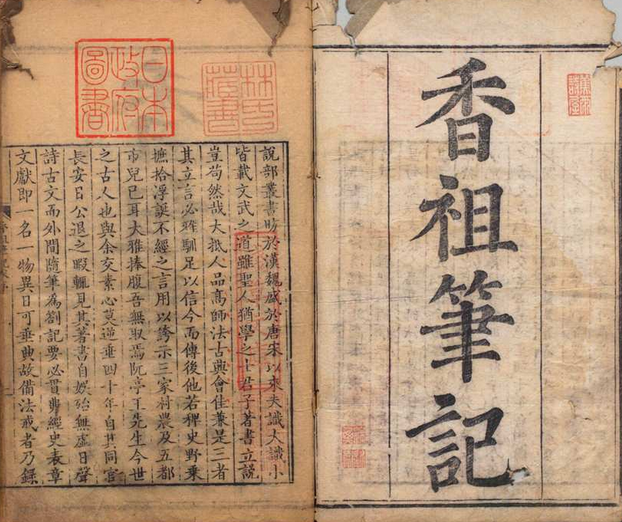 香祖筆記
林氏藏書
日本政府圖書
說部叢書昉於漢魏盛於唐宋以來夫識大識小
皆載文武之道雖聖人猶學之士君子著書立說
豈苟然哉大抵人品高師法古典會佳兼是三者
其立言必雅馴足以信今而傳後他若稗史野乘
摭拾浮誕不經之言用以誇示三家村農及五都
市兒已耳大雅捧腹吾無取焉阮亭王先生今世
之古人也與余交素心莫逆垂四十年自其同官
長安日公退之暇輒見其著書自娛殆無虛日聲
詩古文而外間隨筆為劄記要必貫串經史表章
文獻即一名一物異日可垂典故備法戒者乃錄